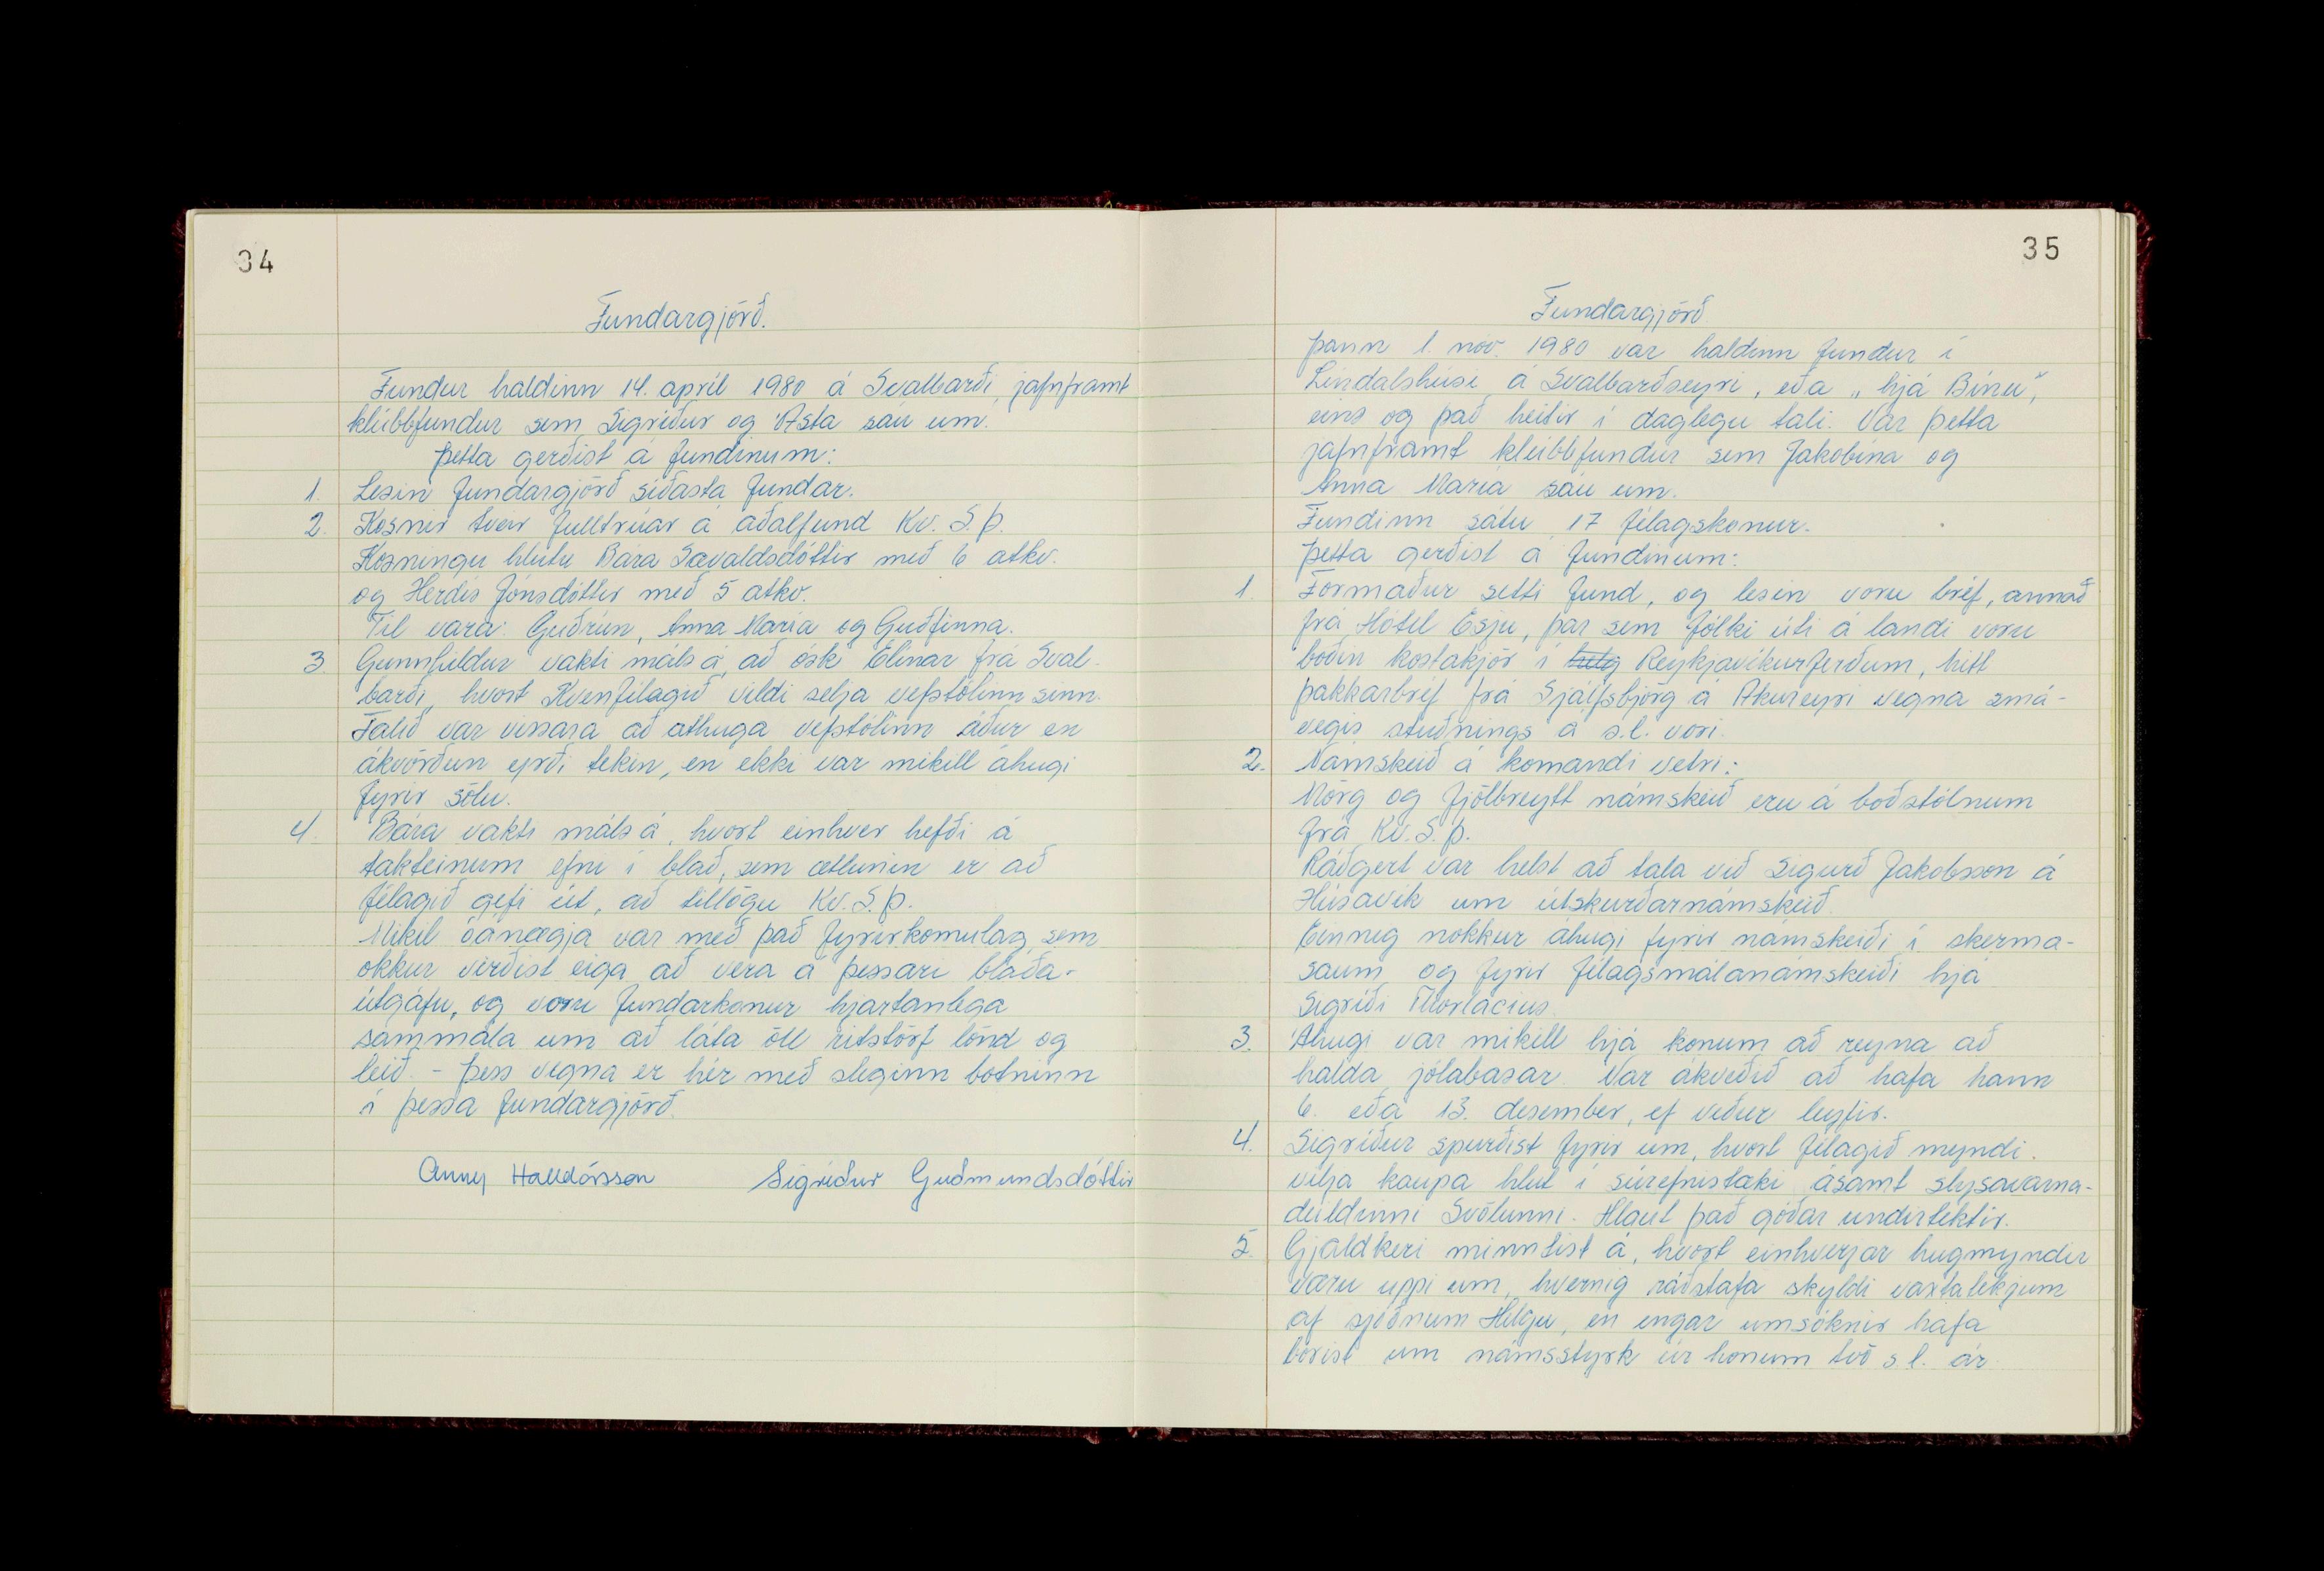 34
Fundargjörð.
Fundur haldinn 14. apríl 1980 á Svalbarði, jafnframt
klúbbfundur sem Sigríður og Ásta sáu um.
Þetta gerðist á fundinum:
1. Lesin fundargjörð síðasta fundar.
2. Kosnir tveir fulltrúar á aðalfund Kv. S.Þ.
Kosningu hlutu Bára Sævaldsdóttir með 6 atkv.
og Herdís Jónsdóttir með 5 atkv.
Til vara: Guðrún, Anna María og Guðfinna.
3 Gunnhildur vakti máls á, að ósk Elínar frá Sval-
barði, hvort Kvenfélagið vildi selja vefstólinn sinn.
Talið var vissara að athuga vefstólinn áður en
ákvörðun yrði tekin, en ekki var mikill áhugi
fyrir sölu.
4. Bára vakti máls á, hvort einhver hefði á
takteinum efni í blað, sem ætlunin er að
félagið gefi út, að tillögu Kv. S.Þ.
Mikil óánægja var með það fyrirkomulag, sem
okkur virðist eiga að vera á þessari blaða-
útgáfu, og voru fundarkonur hjartanlega
sammála um að láta öll ritstörf lönd og
leið. - Þess vegna er hér með sleginn botninn
í þessa fundargjörð.
Anny Halldórsson Sigríður Guðmundsdóttir
35
Fundargjörð
Þann 1. nov. 1980 var haldinn fundur í
Lindalshúsi á Svalbarðseyri, eða „hjá Bínu",
eins og það heitir í daglegu tali. Var þetta
jafnframt klúbbfundur sem Jakobína og
Anna María sáu um.
Fundinn sátu 17 félagskonur.
Þetta gerðist á fundinum:
1. Formaður setti fund, og lesin voru bréf, annað
frá Hótel Esju, þar sem fólki úti á landi voru
boðin kostakjör í helg Reykjavíkurferðum, hitt
þakkarbréf frá Sjálfsbjörg á Akureyri vegna smá-
vegis stuðnings á s.l. vori.
2. Námskeið á komandi vetri:
Mörg og fjölbreytt námskeið eru á boðstólnum
frá Kv. S.Þ.
Ráðgert var helst að tala við Sigurð Jakobsson á
Húsavík um útskurðarnámskeið.
Einnig nokkur áhugi fyrir námskeiði í skerma-
saum og fyrir félagsmálanámskeiði hjá
Sigríði Thorlacius.
3. Áhugi var mikill hjá konum að reyna að
halda jólabasar. Var ákveðið að hafa hann
6. eða 13. desember, ef veður leyfir.
4. Sigríður spurðist fyrir um, hvort félagið myndi
vilja kaupa hlut í súrefnistæki ásamt slysavarna-
deildinni Svölunni. Hlaut það góðar undirtektir.
5. Gjaldkeri minntist á, hvort einhverjar hugmyndir
væru uppi um, hvernig ráðstafa skyldi vaxtatekjum
af sjóðnum Helgu, en engar umsóknir hafa
borist um námsstyrk úr honum tvö s.l. ár